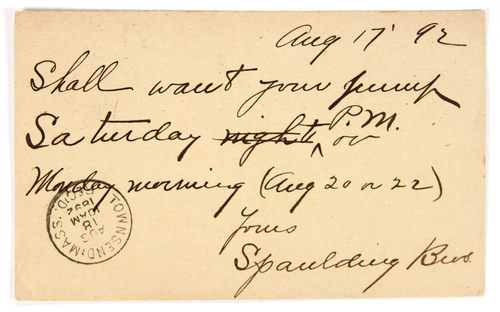 Aug 17 '92
Shall want your pump
Saturday night P.M. or
Monday morning (Aug 20 or 22)
Yours
Spaulding Bros.
TOWNSEND, MASS. REC'D.
AUG
18
10AM
1892